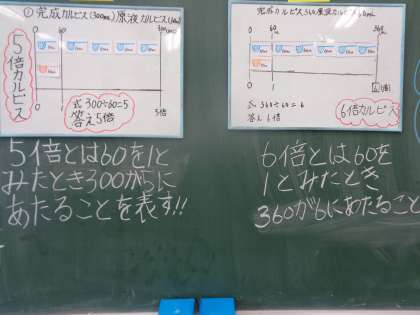 ① 完成カルピス(300mL) 原液カルピス(60mL)
0 60 300mL
5倍カルピス
5倍
式 300÷60=5
答え 5倍
5倍とは60を1と
みたとき300が5に
あたることを表す!!
完成カルピス360 原液カルピス60mL
0 60 360
6倍
式 360÷60=6
答え 6倍
6倍カルピス
6倍とは60を
1とみたとき
360が6にあたること